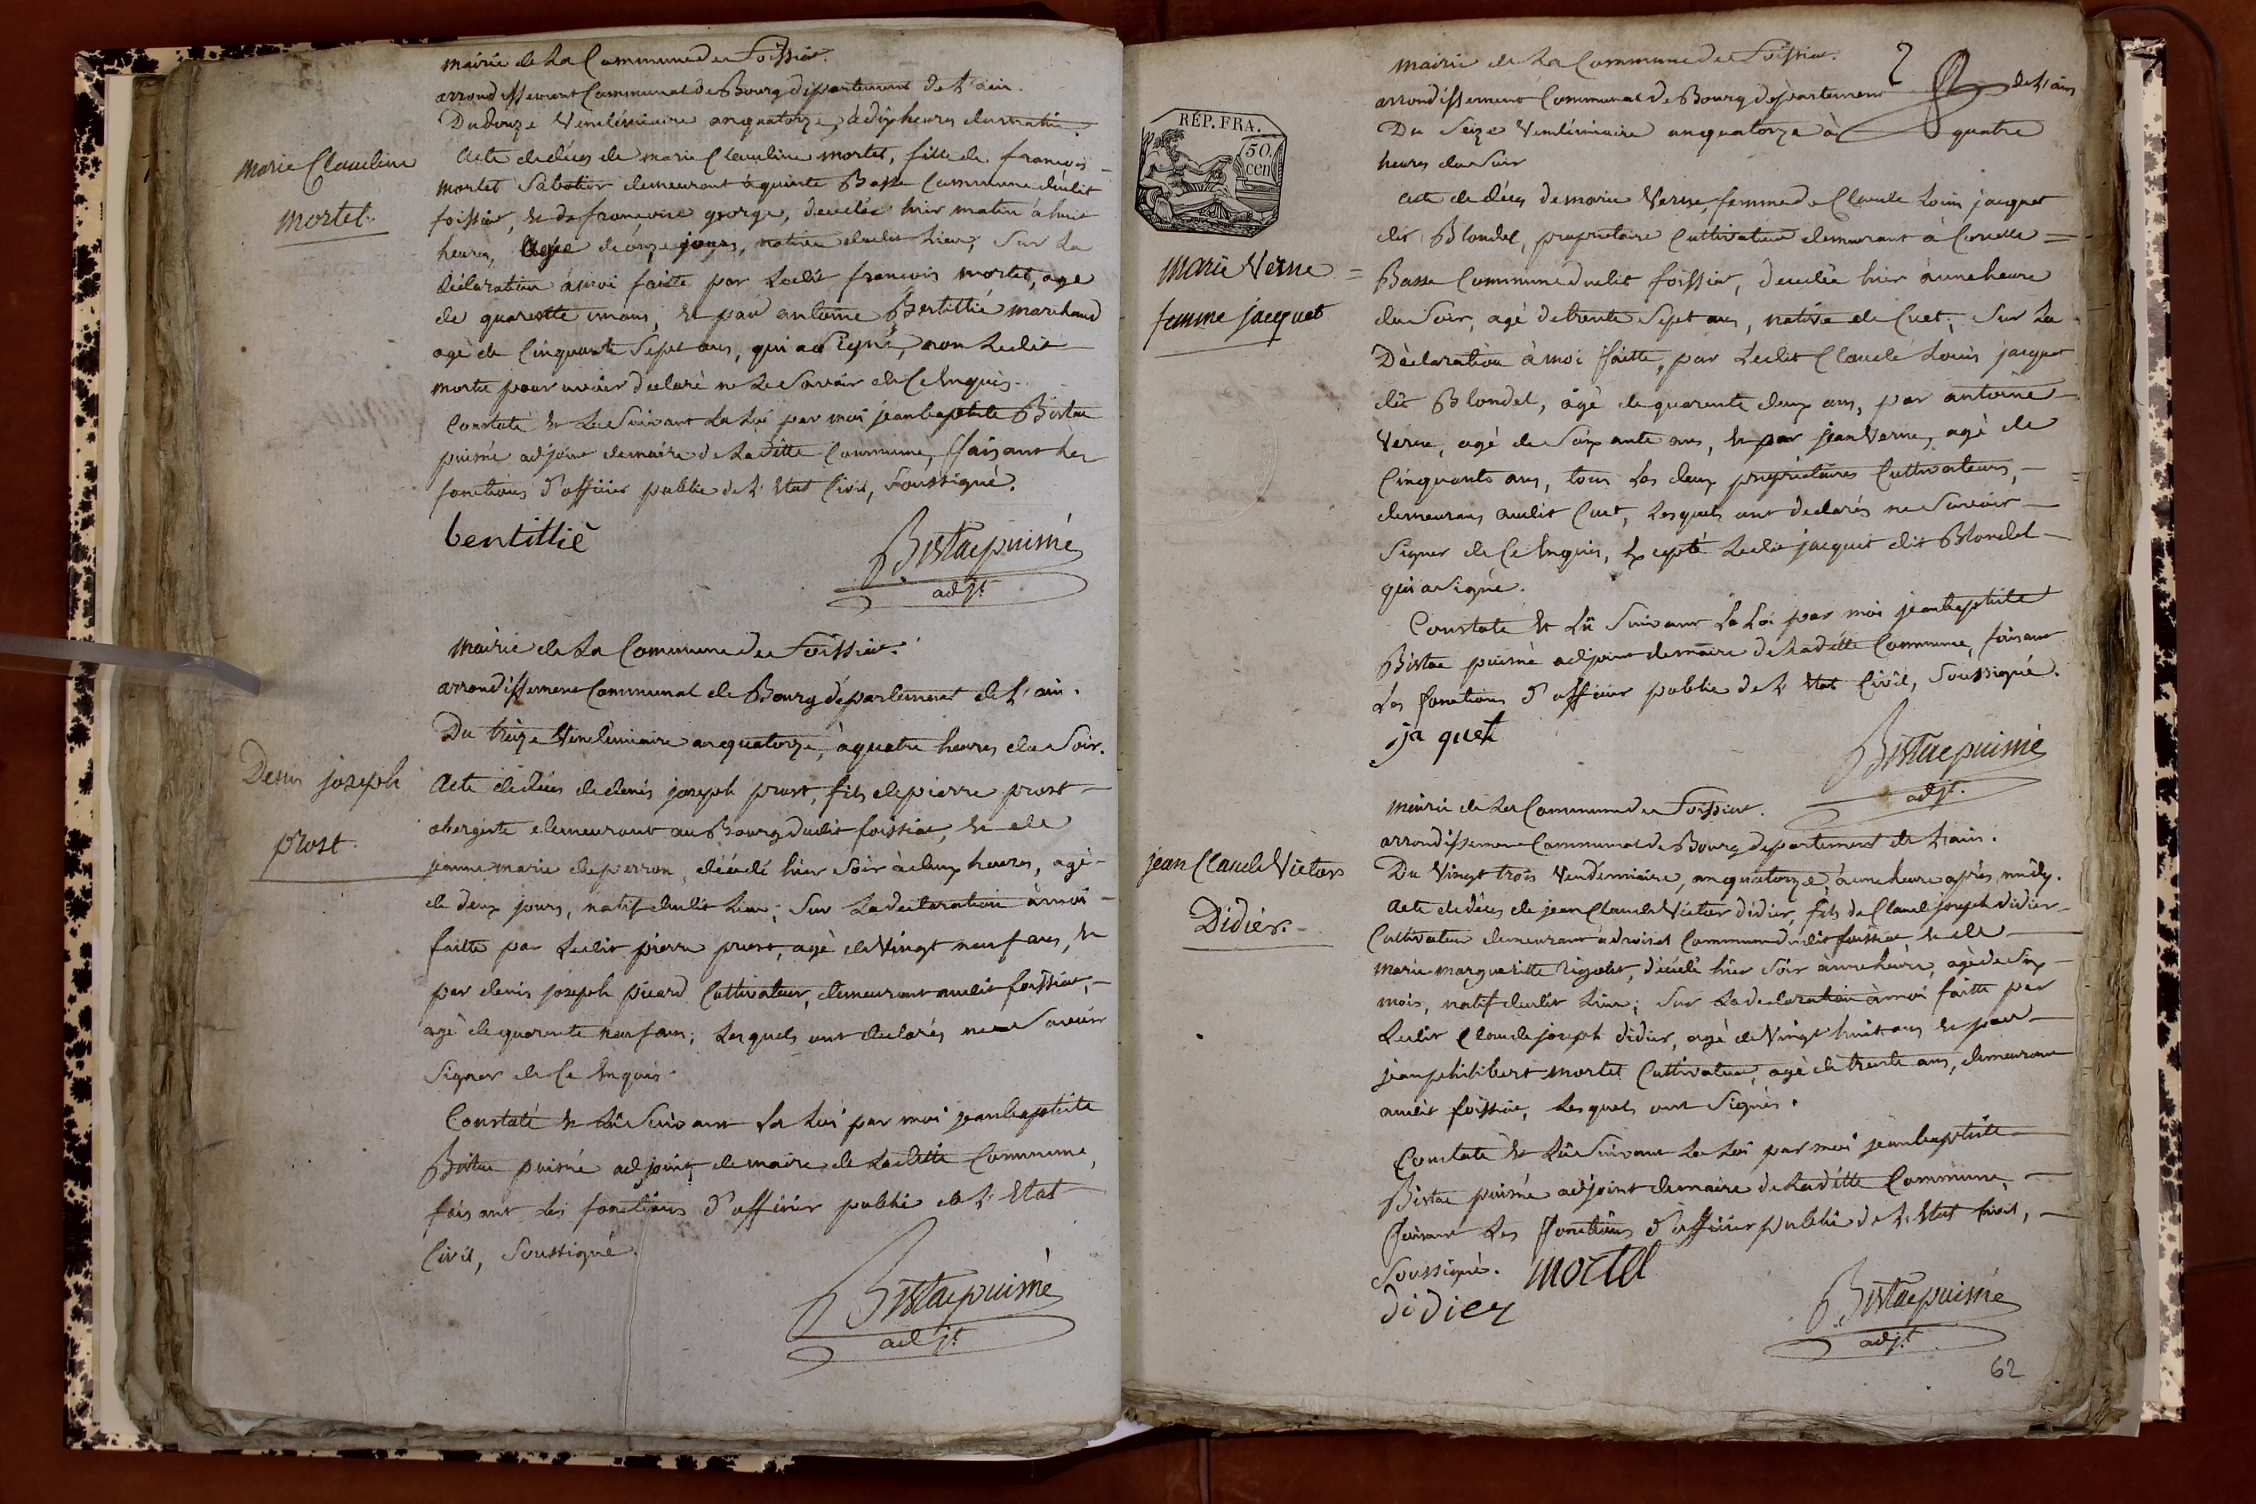 mairie de La Commune de Foissiat.
arrondissement Communal de Bourg département de L'ain.
Du douze Vendémiaire an quatorze, à dix heures du matin.
marie Claudine
mortel.
acte de décès de marie Claudine mortel, fille de françois
mortel Sabotier demeurant à quinte Basse Commune dudit
foissiat, et de françoise george, décédée hier matin à huit
heures, agée de onze jours, native dudit Lieu; Sur La
déclaration à moi faite par Ledit françois mortel, agé
de quarante un ans, et par antoine Bentillié marchand
agé de Cinquante Sept ans, qui a Signé, non Ledit
mortel pour avoir déclaré ne Le Savoir de Ce Enquis.
Constaté et Lu Suivant La Loi par moi jean baptiste Bistac
puisné adjoint de maire de Laditte Commune, ffaisant Les
fonctions d'officier public de L'Etat Civil, Soussigné.
bentilliè
Bistac puisnè
adjt.
mairie de La Commune de Foissiat.
arrondissement Communal de Bourg département de L'ain.
Du treize Vendémiaire an quatorze, à quatre heures du Soir.
Denis joseph
prost.
Acte de décès de denis joseph prost, fils de pierre prost
obergiste demeurant au Bourg dudit foissiat, et de
jeanne marie deperron, décédé hier Soir à deux heures, agé
de deux jours, natif dudit Lieu; Sur La déclaration à moi
faitte par Ledit pierre prost, agé de Vingt neuf ans, et
par denis joseph picard Cultivateur, demeurant audit foissiat,
agé de quarante neuf ans; Lesquels ont déclarés ne Savoir
Signer de Ce Enquis.
Constaté et Lu Suivant La Loi par moi jean baptiste
Bistac puisné adjoint de maire de Laditte Commune,
faisant Les fonctions d'officier public de L'Etat
Civil, Soussigné.
Bistac puisnè
adjt.
mairie de La Commune de Foissiat.
arrondissement Communal de Bourg département de L'ain
Du Seize Vendémiaire an quatorze à quatre
heures du Soir
RÉP. FRA.
50.
cen
marie Verne
femme jacquet
acte de décès de marie Verne, femme de Claude Louis jacquet
dit Blondel, propriétaire Cultivateur demeurant à Corcelle
Basse Commune dudit foissiat, décédée hier à une heure
du Soir, agé de trente Sept ans, native de Cuet; Sur La
Déclaration à moi ffaitte, par Ledit Claude Louis jacquet
dit Blondel, agé de quarante deux ans, par antoine
Verne, agé de Soixante ans, et par jean Verne, agé de
Cinquante ans, tous Les deux propriétaires Cultivateurs,
demeurans audit Cuet, Lesquels ont déclarés ne Savoir
Signer de Ce Enquis, Excepté Ledit jacquet dit Blondel
qui a Signé.
Constaté et Lu Suivant La Loi par moi jean baptiste
Bistac puisné adjoint de maire de Laditte Commune, faisant
Les fonctions d'officier public de L'Etat Civil, Soussigné.
ja quet
Bistac puisnè
adjt.
mairie de La Commune de Foissiat.
arrondissement Communal de Bourg département de L'ain.
Du Vingt trois Vendémiaire, an quatorze, à une heure après midy.
jean Claude Victor
Didier.
acte de décès de jean Claude Victor didier, fils de Claude joseph didier
Cultivateur demeurant à Commune dudit foissiat et de
marie margueritte rigolet, décédé hier Soir à une heure, agé de Six
mois, natif dudit Lieu; Sur La déclaration à moi faitte par
Ledit Claude joseph didier, agé de Vingt huit ans et par
jean philibert mortel Cultivateur, agé de trente ans, demeurant
audit foissiat, Lesquels ont Signés.
Constaté et Lu Suivant La Loi par moi jean baptiste
Bistac puisné adjoint de maire de Laditte Commune,
ffaisant Les ffonctions d'officier public de L'Etat Civil,
Soussigné.
mortel
didier
Bistac puisnè
adjt.
62